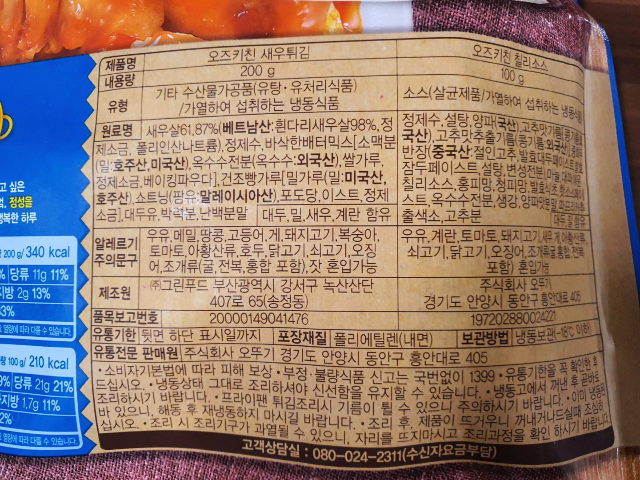 제품명 오즈키친 새우튀김 오즈키친 칠리소스
내용량 200 g 100 g
유형 기타 수산물가공품(유탕·유처리식품) 소스(살균제품/가열하여 섭취하는 냉동식품
/가열하여 섭취하는 냉동식품
원료명 새우살61.87%(베트남산:흰다리새우살98%, 정
제소금, 폴리인산나트륨), 정제수, 바삭한배터믹스[소맥분
(밀:호주산,미국산), 옥수수전분(옥수수:외국산), 쌀가루,
정제소금, 베이킹파우다], 건조빵가루[밀가루(밀:미국산,
호주산), 쇼트닝(팜유:말레이시아산), 포도당, 이스트, 정제
소금], 대두유, 박력분, 난백분말 대두, 밀, 새우, 계란 함유
정제수, 설탕, 양파(국산), 고추맛기름
국산), 고추맛추출기름
반장(중국산:절인고추,
잠두페이스트, 설탕, 변성전분
칠리소스, 홍피망, 청피망
스트, 옥수수전분, 생강,
출색소, 고추분
대두, 밀 함유
알레르기 우유, 메밀, 땅콩, 고등어, 게, 돼지고기, 복숭아,
주의문구 토마토, 아황산류, 호두, 닭고기, 쇠고기, 오징
어, 조개류(굴, 전복, 홍합 포함), 잣 혼입가능
우유, 계란, 토마토, 돼지고기, 새우, 게, 아황산류,
쇠고기, 닭고기, 오징어, 조개류(굴, 홍합, 전복
포함) 혼입가능
제조원 ㈜그린푸드 부산광역시 강서구 녹산산단 주식회사 오뚜기
407로 65(송정동) 경기도 안양시 동안구 흥안대로 405
품목보고번호 20000149041476 197202880024221
유통기한 뒷면 하단 표시일까지 포장재질 폴리에틸렌(내면) 보관방법 냉동보관(-18℃ 이하)
유통전문 판매원 주식회사 오뚜기 경기도 안양시 동안구 흥안대로 405
·소비자기본법에 따라 피해 보상 ·부정·불량식품 신고는 국번없이 1399 ·유통기한을 꼭 확인한 후
드십시오. ·냉동상태 그대로 조리하셔야 신선함을 유지할 수 있습니다. ·냉동고에서 꺼낸 후 곧바로
조리하시기 바랍니다. ·프라이팬 튀김조리시 기름이 튈 수 있으니 주의하시기 바랍니다. ·이미 냉동된
바 있으니, 해동 후 재냉동하지 마시길 바랍니다. ·조리 후, 제품이 뜨거우니 꺼내거나드실때 조심하
십시오. ·조리 시 조리기구가 과열될 수 있으니, 자리를 뜨지마시고 조리과정을 확인 하시기 바랍니다.
고객상담실 : 080-024-2311(수신자요금부담)
고 싶은
정성을
행복한 하루
200 g/ 340 kcal
% 당류 11g 11%
지방 2g 13%
3%
100 g/ 210 kcal
9% 당류 21g 21%
지방 1.7g 11%
2%